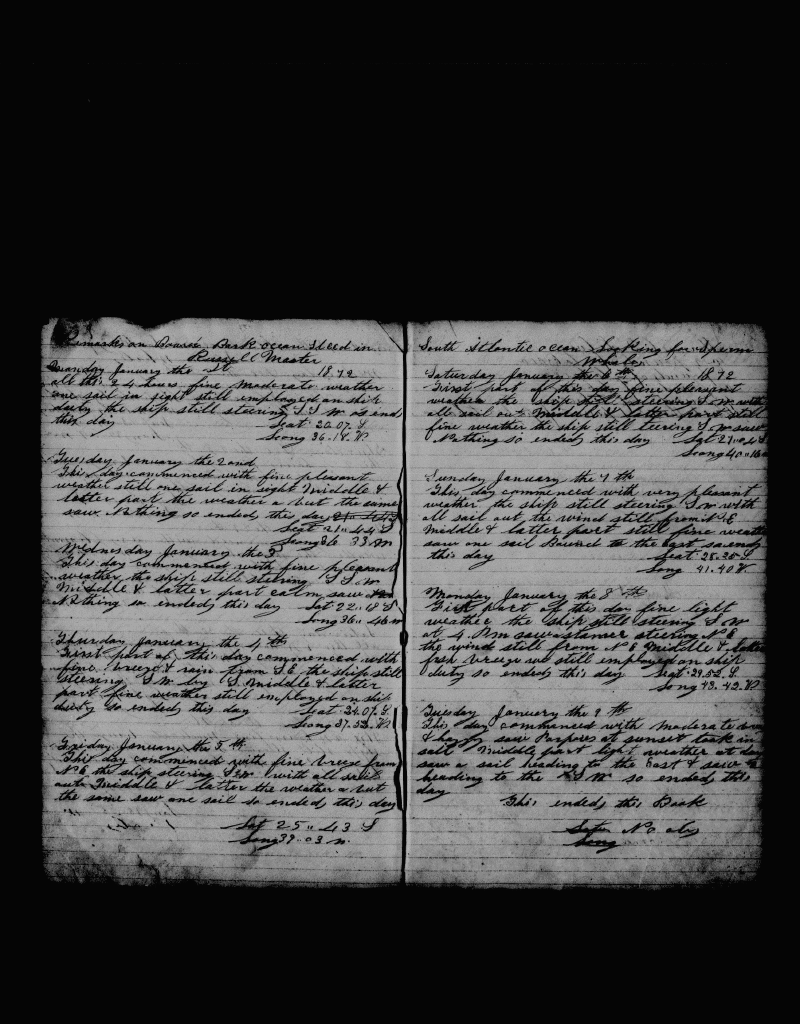 Remarks on Board Bark ocean Steed in
Russell Master
Munday January the 1st 1872
all this 24 hours fine moderate weather
one sail in sight still employed on ship
duty the ship still steering S S W so end
this day Lat 20.07. S
Long 36.14. W
Tuesday January the 2ond
This day commenced with fine pleasant
weather still one sail in sight Middle &
latter part the weather a but the same
saw Nothing so ended this day
Leat 21.. 44 S
Long 36 33. W
Wednesday January the 3
This day commenced with fine pleasant
weather the ship still steering S S. W
Middle & latter part calm saw
Nothing so ended this day Lat 22..18 S
Long 36.. 46 W
Thursday January the 4th
First part of this day commenced with
fine breeze & rain from S E the ship still
steering S W by S Middle & latter
part fine weather still employed on ship
duty so ended this day Leat 24.07. S
Long 37.52. W
Friday January the 5th
This day commenced with fine breeze from
N E the ship steering S W with all sail
out Middle & latter the weather a but
the same saw one sail so ended this day
Lat 25.. 43 S
Long 39..03 W.
South Atlantic ocean Looking for Sperm
Whales
Saturday January the 6th 1872
First part of this day fine pleasant
weather the ship still steering S W with
all sail out Middle & latter part still
fine weather the ship still teering S. W saw
Nothing so ended this day Lat 27..04 S
Loong 40..16
Sunday January the 7th
This day commenced with very pleasant
weather the ship still steering S W with
all sail out the wind still from N E
Middle & latter part still fine weather
saw one sail Bound to the East so ends
this day Leat 28.28 S
Long 41.40 W.
Monday January the 8th
First part of this day fine light
weather the ship still steering S W
at 4 P.m saw a stamer steering N E
the wind still from N E Middle & latter
fresh breeze we still employed on ship
duty so ended this day Leat 29.52. S
Long 43.42. W
Tuesday January the 9th
This day commanced with Moderate
& hazy saw Porpoes at sunset took in
sail Middle part light weather at day
saw a sail heading to the East & saw
heading to the S W so ended this
day
This ended this Book
Lat No obs
Long